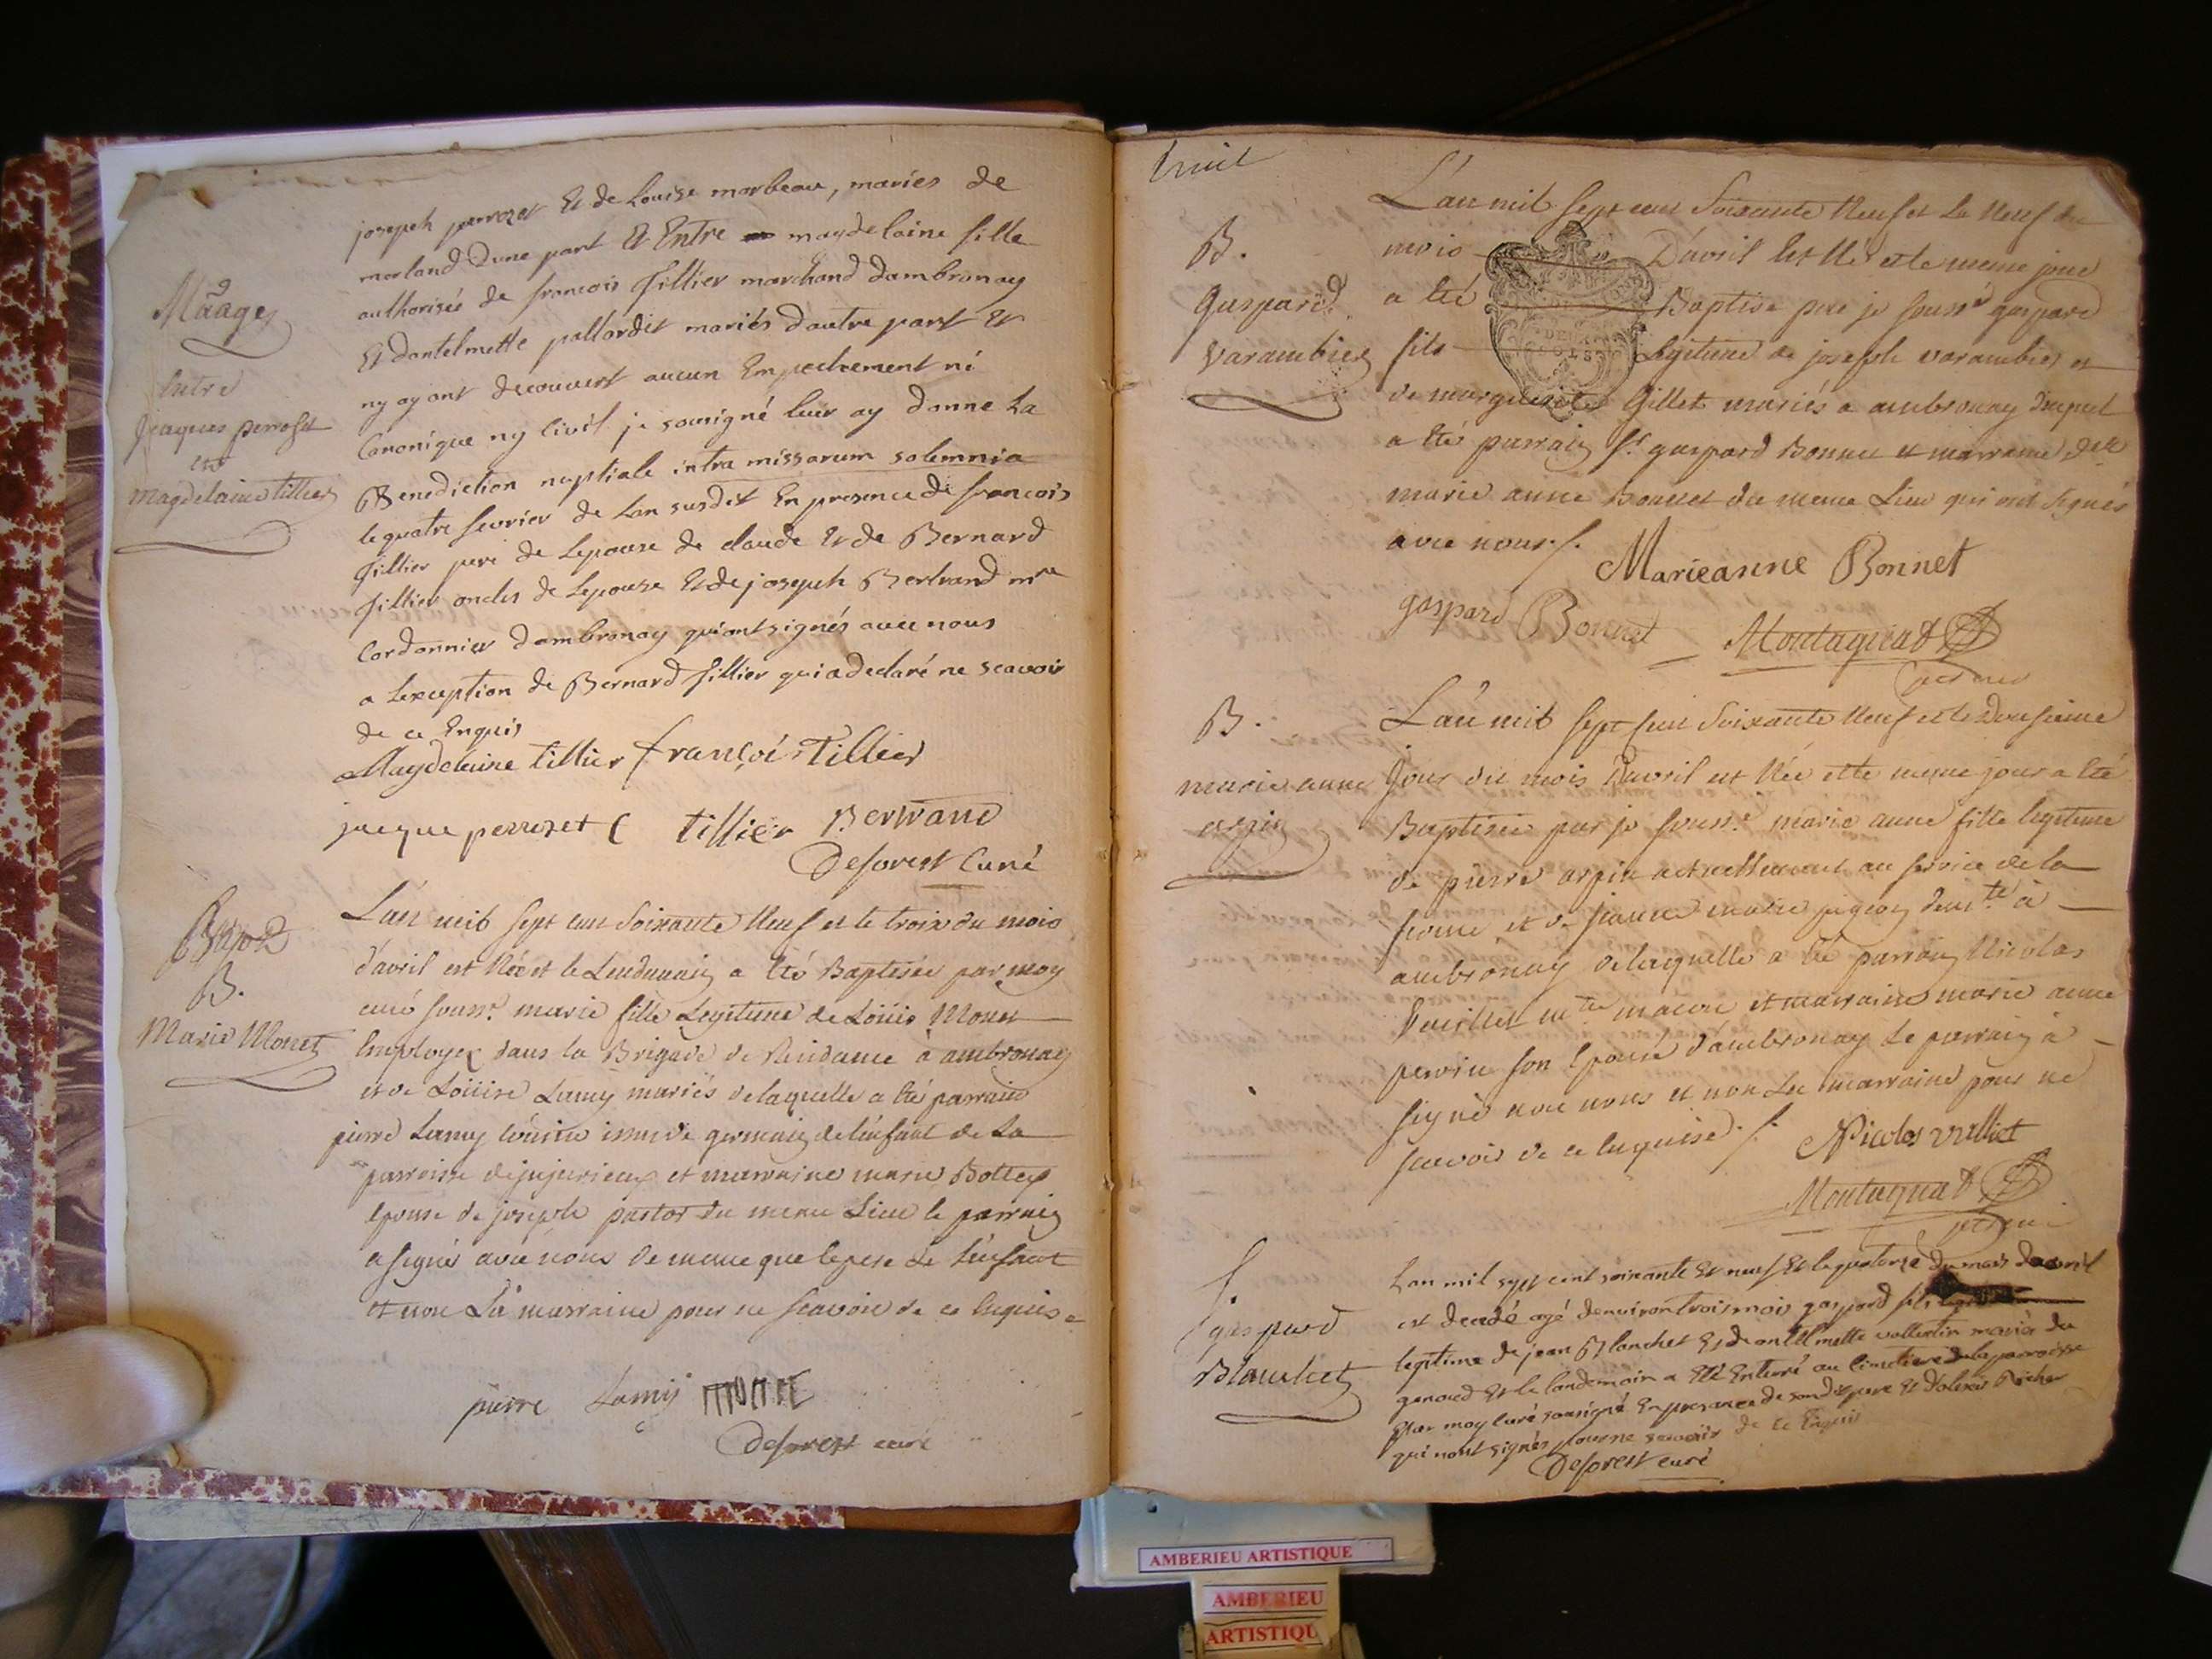 Maage
Entre
Jaques perroset
et
magdelaine tillier
joseph perrozet Et de Louise marbeau, mariés de
morland Dune part Et Entre magdelaine fille
authorisée de francois fillier marchand dambronay
Et dantelmette pallordet mariés dautre part Et
ny ayant decouvert aucun Empechement ni
Canonique ny Civil je sousigné leur ay donne La
Benediction nuptiale intra missarum solemnia
le quatre fevrier de Lan susdit En presence de francois
fillier pere de Lepouse de claude Et de Bernard
fillier oncles de Lepouse Et de joseph Bertrand mre
Cordonnier dambronay qui ont signés avec nous
a Lexception de Bernard fillier qui a declaré ne scavoir
de ce Enquis
Magdeleine tillier françois Tillier
jacque perrozet C tillier Bertrand
Deforest Curé
B.
Marie Monet
L'an mil sept cent Soixante Neuf et le troix du mois
d'avril est Née et le Lendemain a été Baptisée par moy
curé souss.é marie fille Legitime de Loüis Monet
Employez dans la Brigade de Residance à ambronay
et de Loüise Lamy mariés de laquelle a été parrain
pierre Lamy cousin issus de germain de l'enfant de La
parroisse de jujurieux et marraine marie Bottex
epouse de joseph pastor du meme Lieu le parrain
a signé avec nous de meme que le pere de L'enfant
et non La marraine pour ne scavoir de ce enquise
pierre Lamy MONET
Deforest curé
huit
B.
Gaspard
Varambier
L'an mil sept cent Soixante Neuf et Le Neuf du
mois D'avril Est Né et le meme jour
a été Baptisé par je souss.é gaspard
fils Legitime de joseph varambier et
de marguerite Gillet mariés a ambronay duquel
a été parrain Sr. gaspard Bonnet et marraine Delle
marie anne Bonnet du meme Lieu qui ont signés
avec nous ./.
Marieanne Bonnet
gaspard Bonnet Montagnat
B.
marie anne
arpin
L'an mil sept Cent Soixante Neuf et le Dousieme
Jour du mois D'avril est Née et le meme jour a été
Baptisée par je souss.é marie anne fille legitime
de pierre arpin actuellement au service de la
france et de jeanne marie pigeon demte à
ambronay de laquelle a été parrain Nicolas
Vuilliet mtre macon et marraine marie anne
perrin son Epouse d'ambronay Le parrain à
signé avec nous et non La marraine pour ne
scavoir de ce enquise ./.
Nicolas vulliet
Montagnat
f.
gaspard
Blanchet
Lan mil sept cent soixante Et neuf Et le quatorze du mois davril
est decedé agé denviron trois mois gaspard fils
legitime de jean Blanchet Et de antelmette vallentin mariés du
genoud Et le landemain a Eté Enterré au Cimetiere de la parroisse
par moy Curé sousigné En presance de son dit pere Et dalexis Richer
qui nont signés pour ne scavoir de ce Enquis
Deforest curé
AMBERIEU ARTISTIQUE
AMBERIEU
ARTISTIQU